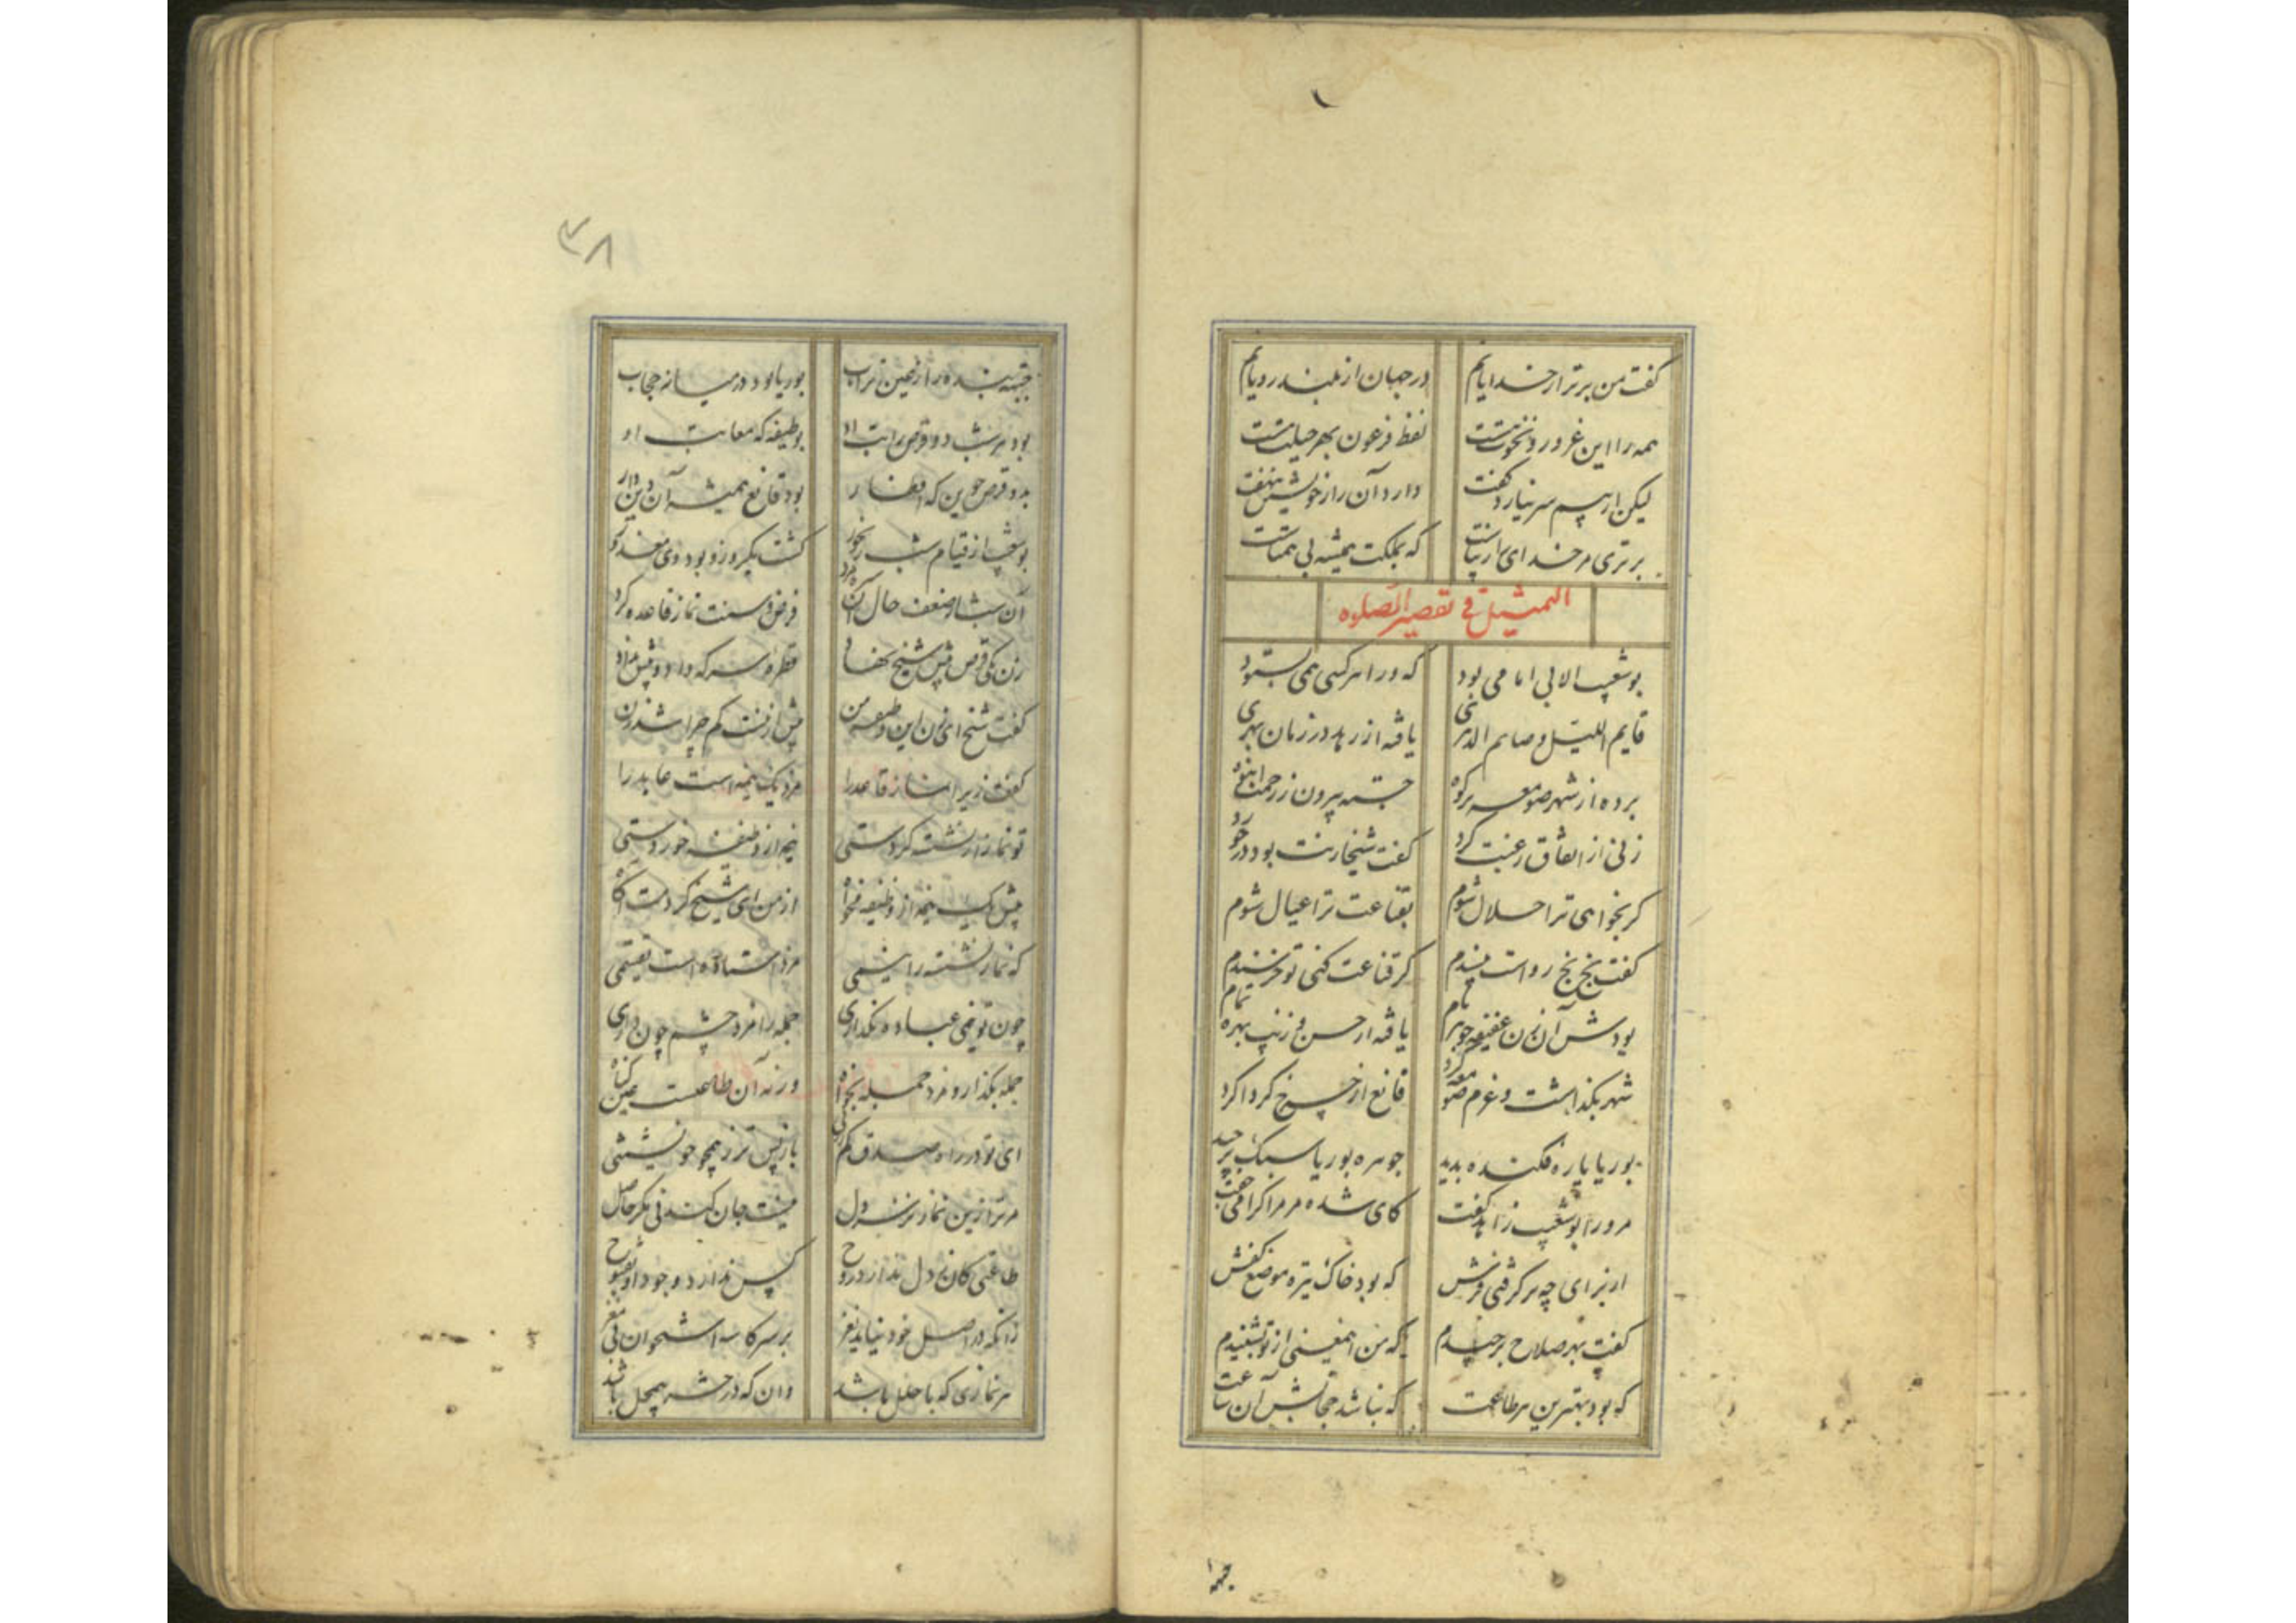 گفت من برتر از خدایانم در جهان از بلند رویانم
همه را این غرور و نخوت هست لفظ فرعون بهر جبلت هست
لیکن از بیم سر نیارد گفت دارد آن راز خویشتن بنهفت
برتری مر خدای را زیباست که بملکت همیشه بی همتاست
التمثیل فی تقصیر الصلوه
بوشعیب الابی امامی بود که ورا هر کسی همی بستود
قایم اللیل و صایم الدهری یافته از زهد در زمان بهری
برده از شهر صومعه بر کوه جسته بیرون ز زحمت انبوه
زنی از اتفاق رغبت کرد گفت شیخا زنت بود در خورد
گر بخواهی ترا حلال شوم بقناعت ترا عیال شوم
گفت بخ بخ رواست بپسندم گر قناعت کنی تو خرسندم
بودش آن زن عفیفه جوهر نام یافته از حسن و زیب بهره تمام
شهر بگذاشت و عزم صومعه کرد قانع از چرخ گرداگرد
بوریا پاره فکنده بدید جوهره بوریا سبک برچید
مرورا بوشعیب زاهد گفت کای شده مر مرا گرامی جفت
از برای چه برگرفتی فرش که بود خاک تیره موضع کفش
گفت بهر صلاح برچیدم که من این معنی از تو بشنیدم
که بود بهترین هر طاعت که نباشد حجابش آن ساعت
جبهه
۳۸
جبهه بنده را ز عین تراب بوریا بود در میانه حجاب
بود هر شب دو قرص راتب او بوظیفه که معاتب او
بدو قرص جوین که افطار بود قانع همیشه آن دین دار
بوشعیب از قیام شب رنجور گشت یکروز و بود وی معذور
آن شب از ضعف حال آن مرد فرض و سنت نماز قاعده کرد
زن یکی قرص پیش شیخ نهاد قطره سرکه داد و پیش نداد
گفت شیخ ای زن این وظیفه من بیش از ینست کم چرا شد زن
گفت زیرا نماز قاعد را مزد یک نیمه است عابد را
تو نماز ار نشسته کردستی نیمه از وظیفه خوردستی
بیش یک نیمه از وظیفه مخواه از من ای شیخ کردمت آگاه
که نماز نشسته را نیمی مزد استاده است تقسیمی
چون تو نیمی عبادت بگذاری جمله را مزد چشم چون داری
جمله بگذار و مزد جمله بخواه ورنه آن طاعتست عین گناه
ای تو در راه صدق کم ز زنی باز پس تر ز همچو خویشتنی
مر ترا زین نماز نز سر دل نیست جان کندنی مگر حاصل
طاعتی کان ز دل ندارد روح کس ندارد وجود او بفتوح
زانکه در اصل خود نیاید نغز بر سر کاسه استخوان بی مغز
هر نمازی که با خلل باشد دان که در حشر بیمحل باشد